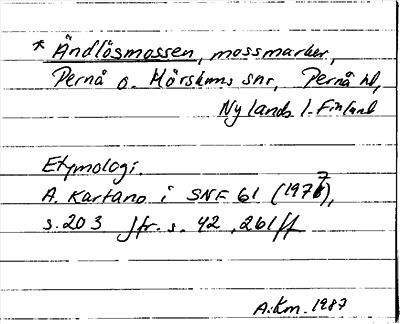 * Ändlösmossen, mossmarker,
Pernå o. Mörskoms snr, Pernå hd,
Nylands l. Finland
Etymologi.
A. Kartano i SNF 61 (1977),
s. 203 jfr. s. 42, 261ff
A.Km. 1987